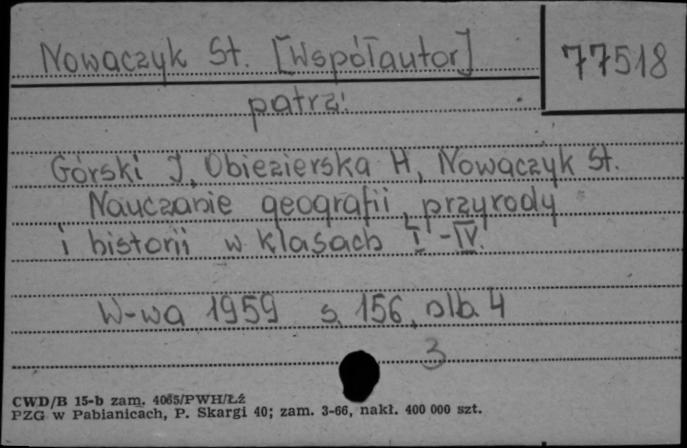 Nowaczyk St. [Współautor]
77518
patrz:
Górski J, Obiezierska H, Nowaczyk St.
Nauczanie geografii, przyrody
i historii w klasach I-IV.
W-wa 1959 s. 156, nlb. 4
3
CWD/B 15-b zam. 4065/PWH/Łź
PZG w Pabianicach, P. Skargi 40; zam. 3-66, nakł. 400 000 szt.